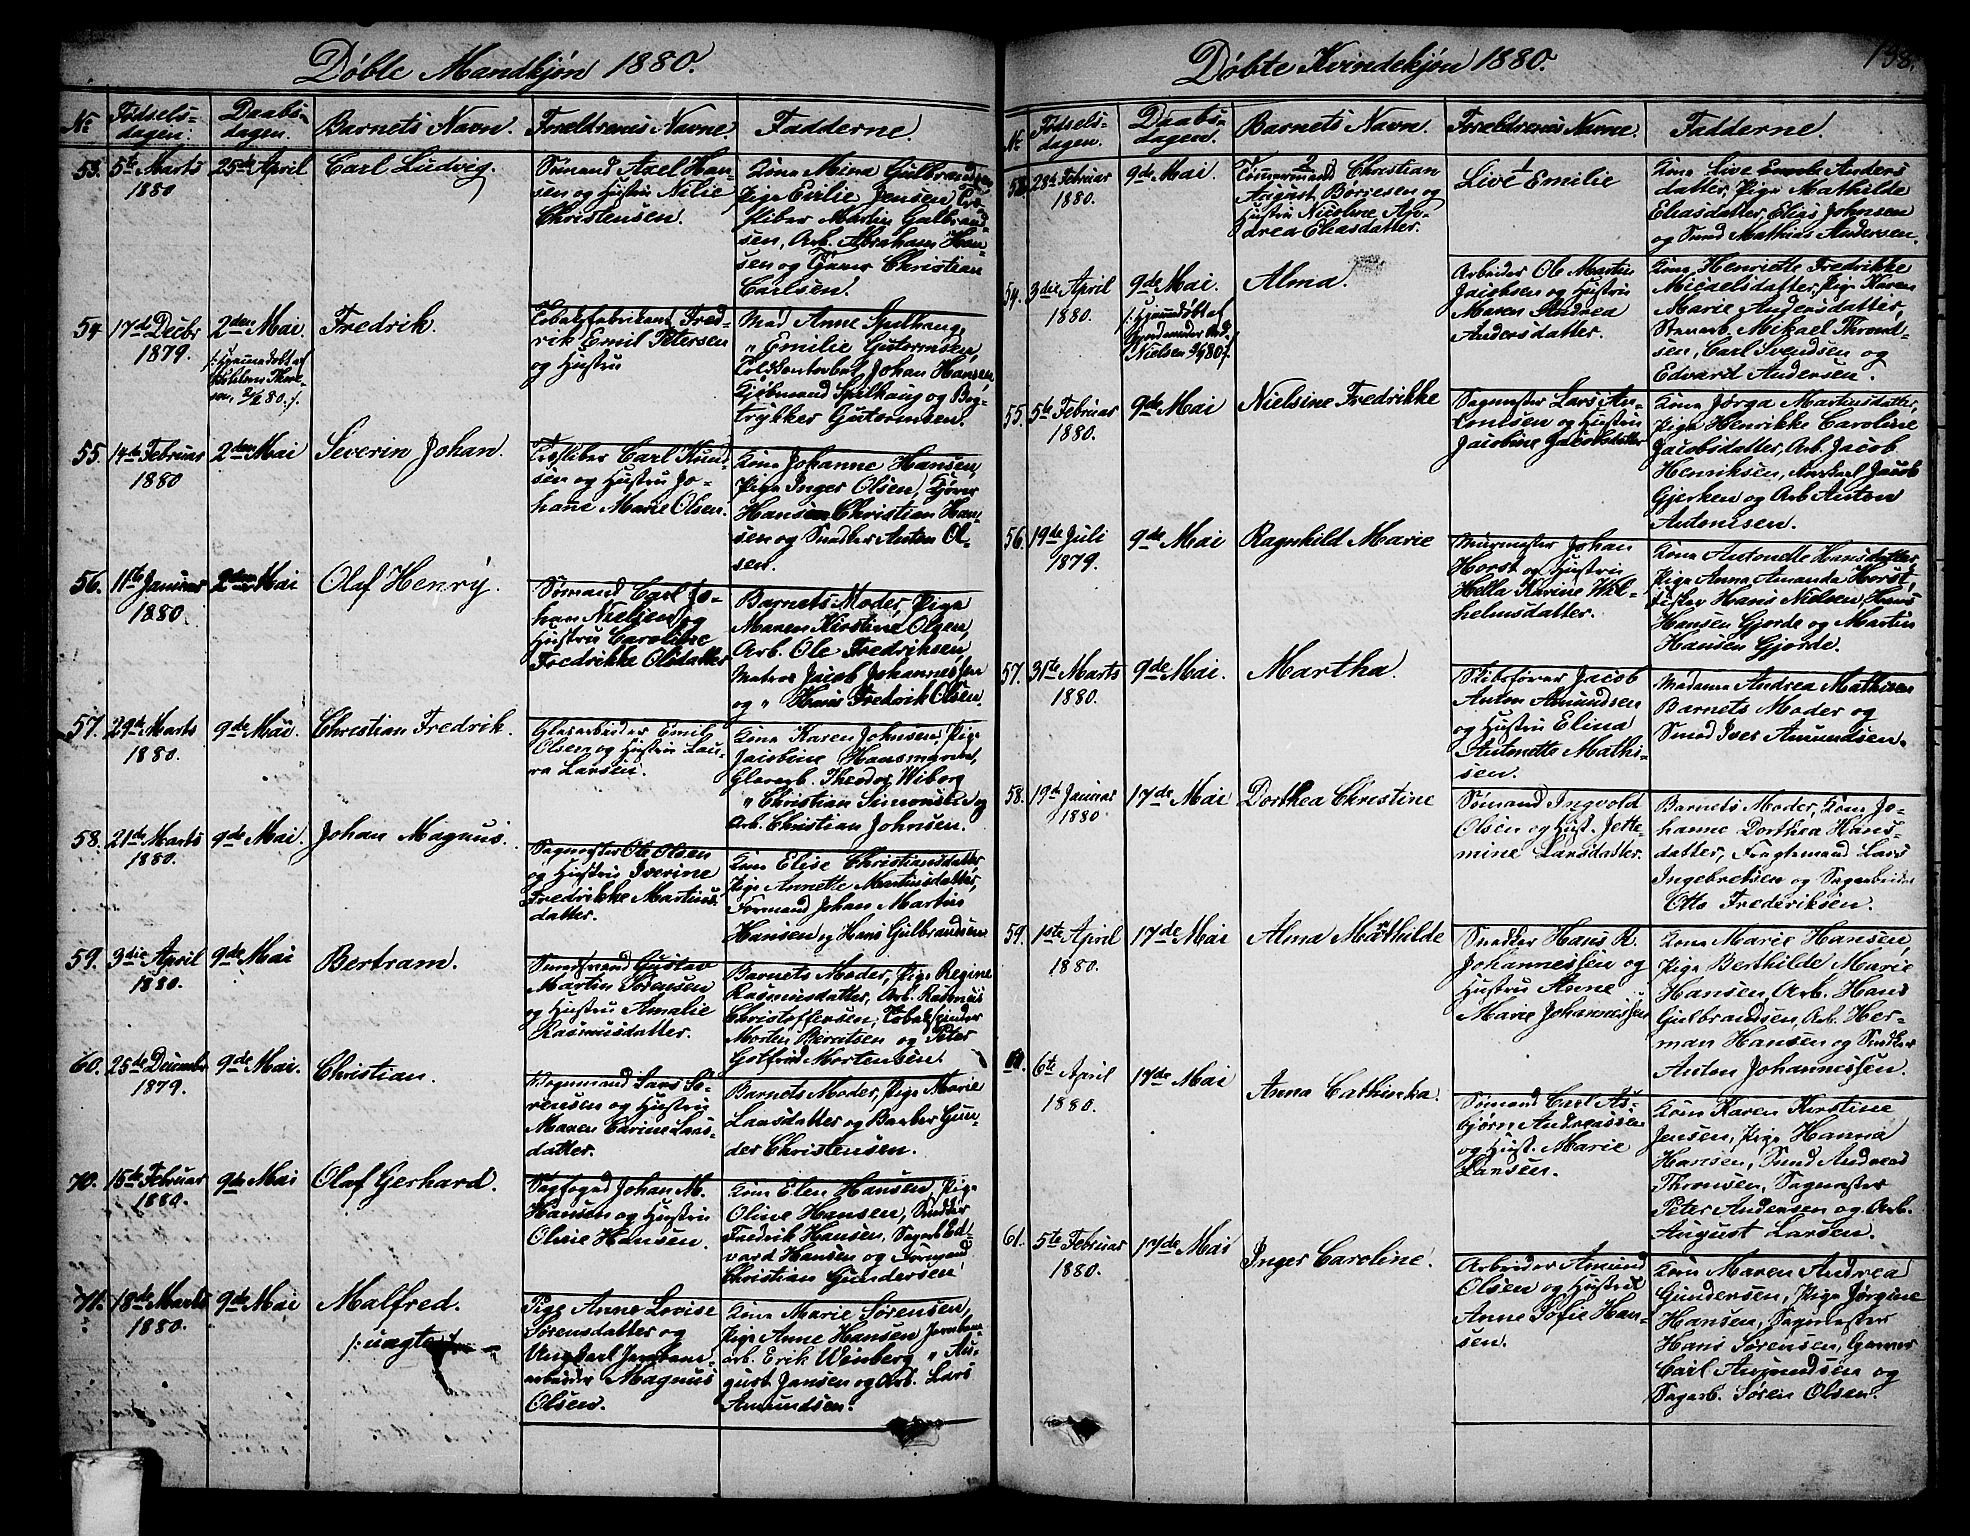 138.
Døbte Mandkjøn 1880.
No
Fødsels-
dagen.
Daabs-
dagen.
Barnets Navn.
Forældrenes Navne.
Fadderne.
53.
5te Marts
1880
25de April
Carl Ludvig.
Sømand Axel Han-
sen og Hustru Nilie
Christensen.
Kone Mina Gulbrandsen
Pige Emilie Jensen,
Martin Gulbrand-
sen, Arb. Abraham Han-
sen og Christian
Carlsen.
54
17de Decbr
1879.
2den Mai.
Fredrik.
Tobaksfabrikant Fred-
rik Emil Petersen
og Hustru
Mad Anne Spilhaug,
" Emilie Gutormsen,
Johan Hansen,
Kjøbmand Spilhaug og Bog-
trykker Gutormsen.
55.
14de Februar
1880
2den Mai
Severin Johan.
Carl Knud-
sen og Hustru Jo-
hane Marie Olsen.
Kone Johanne Hansen,
Pige Inger Olsen,
Hans Christian Han-
sen og Snedker Anton Ol-
sen.
56.
11te Januar
1880.
2den Mai
Olaf Henry.
Sømand Carl Jo-
han Nielsen og
Hustru Caroline
Fredrikke Olsdatter
Barnets Moder, Pige
Maren Kirstine Olsen,
Arb. Ole Fredriksen,
Matros Jacob Johannessen
og " Hans Fredrik Olsen.
57.
29de Marts
1880.
9de Mai.
Christian Fredrik.
Glasarbeider Emil
Olsen og Hustru Lau-
ra Larsen.
Kone Karen Johnsen, Pige
Jacobine Hansmarent,
Glasarb. Theodor Wiborg
" Christian Simonsen og
Arb. Christian Johnsen.
58.
21de Marts
1880.
9de Mai.
Johan Magnus.
Sagmester Ole Olsen
og Hustru Iverine
Fredrikke Martins-
datter.
Kone Elise Christiansdatter,
Pige Annette Martinsdatter,
Formand Johan Martin
Hansen og Hans Gulbrandsen.
59.
3die April
1880.
9de Mai
Bertram.
Gustav
Martin Sørensen
og Hustru Amalie
Rasmusdatter.
Barnets Moder, Pige Regine
Rasmusdatter, Arb. Rasmus
Christoffersen, Tobakspinder
Morten Berntsen og Peter
Gotfred Mortensen.
60.
25de December
1879.
9de Mai.
Christian.
Vognmand Lars Sø-
rensen og Hustru
Maren Carine Lars-
datter.
Barnets Moder, Pige Marie
Larsdatter og Barber Gun-
der Christensen.
70.
15de Februar
1880.
9de Mai
Olaf Gerhard.
Sagfoged Johan M.
Hansen og Hustru
Olivie Hansen.
Kone Elen Hansen, Pige
Oline Hansen, Snedker
Fredrik Hansen, Sagarb. Ed-
vard Hansen og Formand
Christian Gundersen
71.
18de Marts
1880.
9de Mai
Malfred.
/: uægte :/
Pige Anne Lovise
Sørensdatter og
Ungkarl Jernbane-
arbeider Magnus
Olsen.
Kone Marie Sørensen,
Pige Anne Hansen Jernbane-
arb. Erik Wenberg " Au-
gust Jansen og Arb. Lars
Amundsen.
Døbte Kvindekjøn 1880.
No
Fødsels-
dagen.
Daabs-
dagen.
Barnets Navn.
Forældrenes Navne.
Fadderne.
53.
28de Februar
1880.
9de Mai.
2
Tømmermand Christian
August Børresen og
Hustru Nicoline An-
drea Eliasdatter.
1
Live Emilie
Kone Live Anders
datter, Pige Mathilde
Eliasdatter, Elias Johnsen
og Smed Mathias Andersen.
54.
3die April
1880.
9de Mai.
/: hjemmedøbt af
Gjordemoder Mad.
Nielsen
Alma.
Arbeider Ole Martin
Jacobsen og Hustru
Maren Andrea
Andersdatter.
Kone Henriette Fredrikke
Micaelsdatter, Pige Karen
Marie Andersdatter,
Mikael Thrond-
sen, Carl Svendsen og
Edvard Andersen.
55.
5te Februar
1880.
9de Mai
Nielsine Fredrikke
Sagmester Lars An-
tonisen og Hustru
Jacobine Jacobsdatter
Kone Jørga Martinsdatter,
Pige Henrikke Caroline
Jacobsdatter, Arb. Jacob
Henriksen, Jacob
Gjerken og Arb. Anton
Antonisen.
56.
19de Juli
1879.
9de Mai
Ragnhild Marie
Murmester Johan
Horst og Hustru
Hella Karine Wil-
helmsdatter.
Kone Antonette Hansdatter,
Pige Anna Amanda Horst,
Fisker Hans Nielsen, Hans
Hansen Gjorde og Martin
Hansen Gjorde.
57.
31te Marts
1880.
9de Mai.
Martha.
Skibsfører Jacob
Anton Amundsen
og Hustru Elina
Antonette Mathi-
sen.
Madame Andrea Mathisen
Barnets Moder og
Smed Iver Amundsen.
58.
19de Januar
1880.
17de Mai
Dorthea Christine
Sømand Ingvold
Olsen og Hust. Jette-
mine Larsdatter.
Barnets Moder, Kone Jo-
hanne Dorthea Hans-
datter, Fragtemand Lars
Ingebretsen og Sagarbeider
Otto Frederiksen.
59.
1ste April
1880.
17de Mai
Alma Mathilde
Snedker Hans R.
Johannessen og
Hustru Anne
Marie Johannessen
Kone Marie Hansen,
Pige Berthilde Marie
Hansen, Arb. Hans
Gulbrandsen, Arb. Her-
man Hansen og Snedker
Anton Johannessen.
60.
6te April
1880.
17de Mai
Anna Cathinka.
Sømand Carl As-
bjørn Andreassen
og Hust. Marie
Larsen.
Kone Karen Kirstine
Jensen, Pige Hanna
Hansen, Smed Andreas
Thorsen, Sagmester
Peter Andersen og Arb.
August Larsen.
61.
5te Februar
1880.
17de Mai
Inger Caroline.
Arbeider Amund
Olsen og Hustru
Anne Sofie Han-
sen.
Kone Maren Andrea
Gundersen, Pige Jørgine
Hansen, Sagmester
Hans Sørensen,
Carl Amundsen og
Sagarb. Søren Olsen.